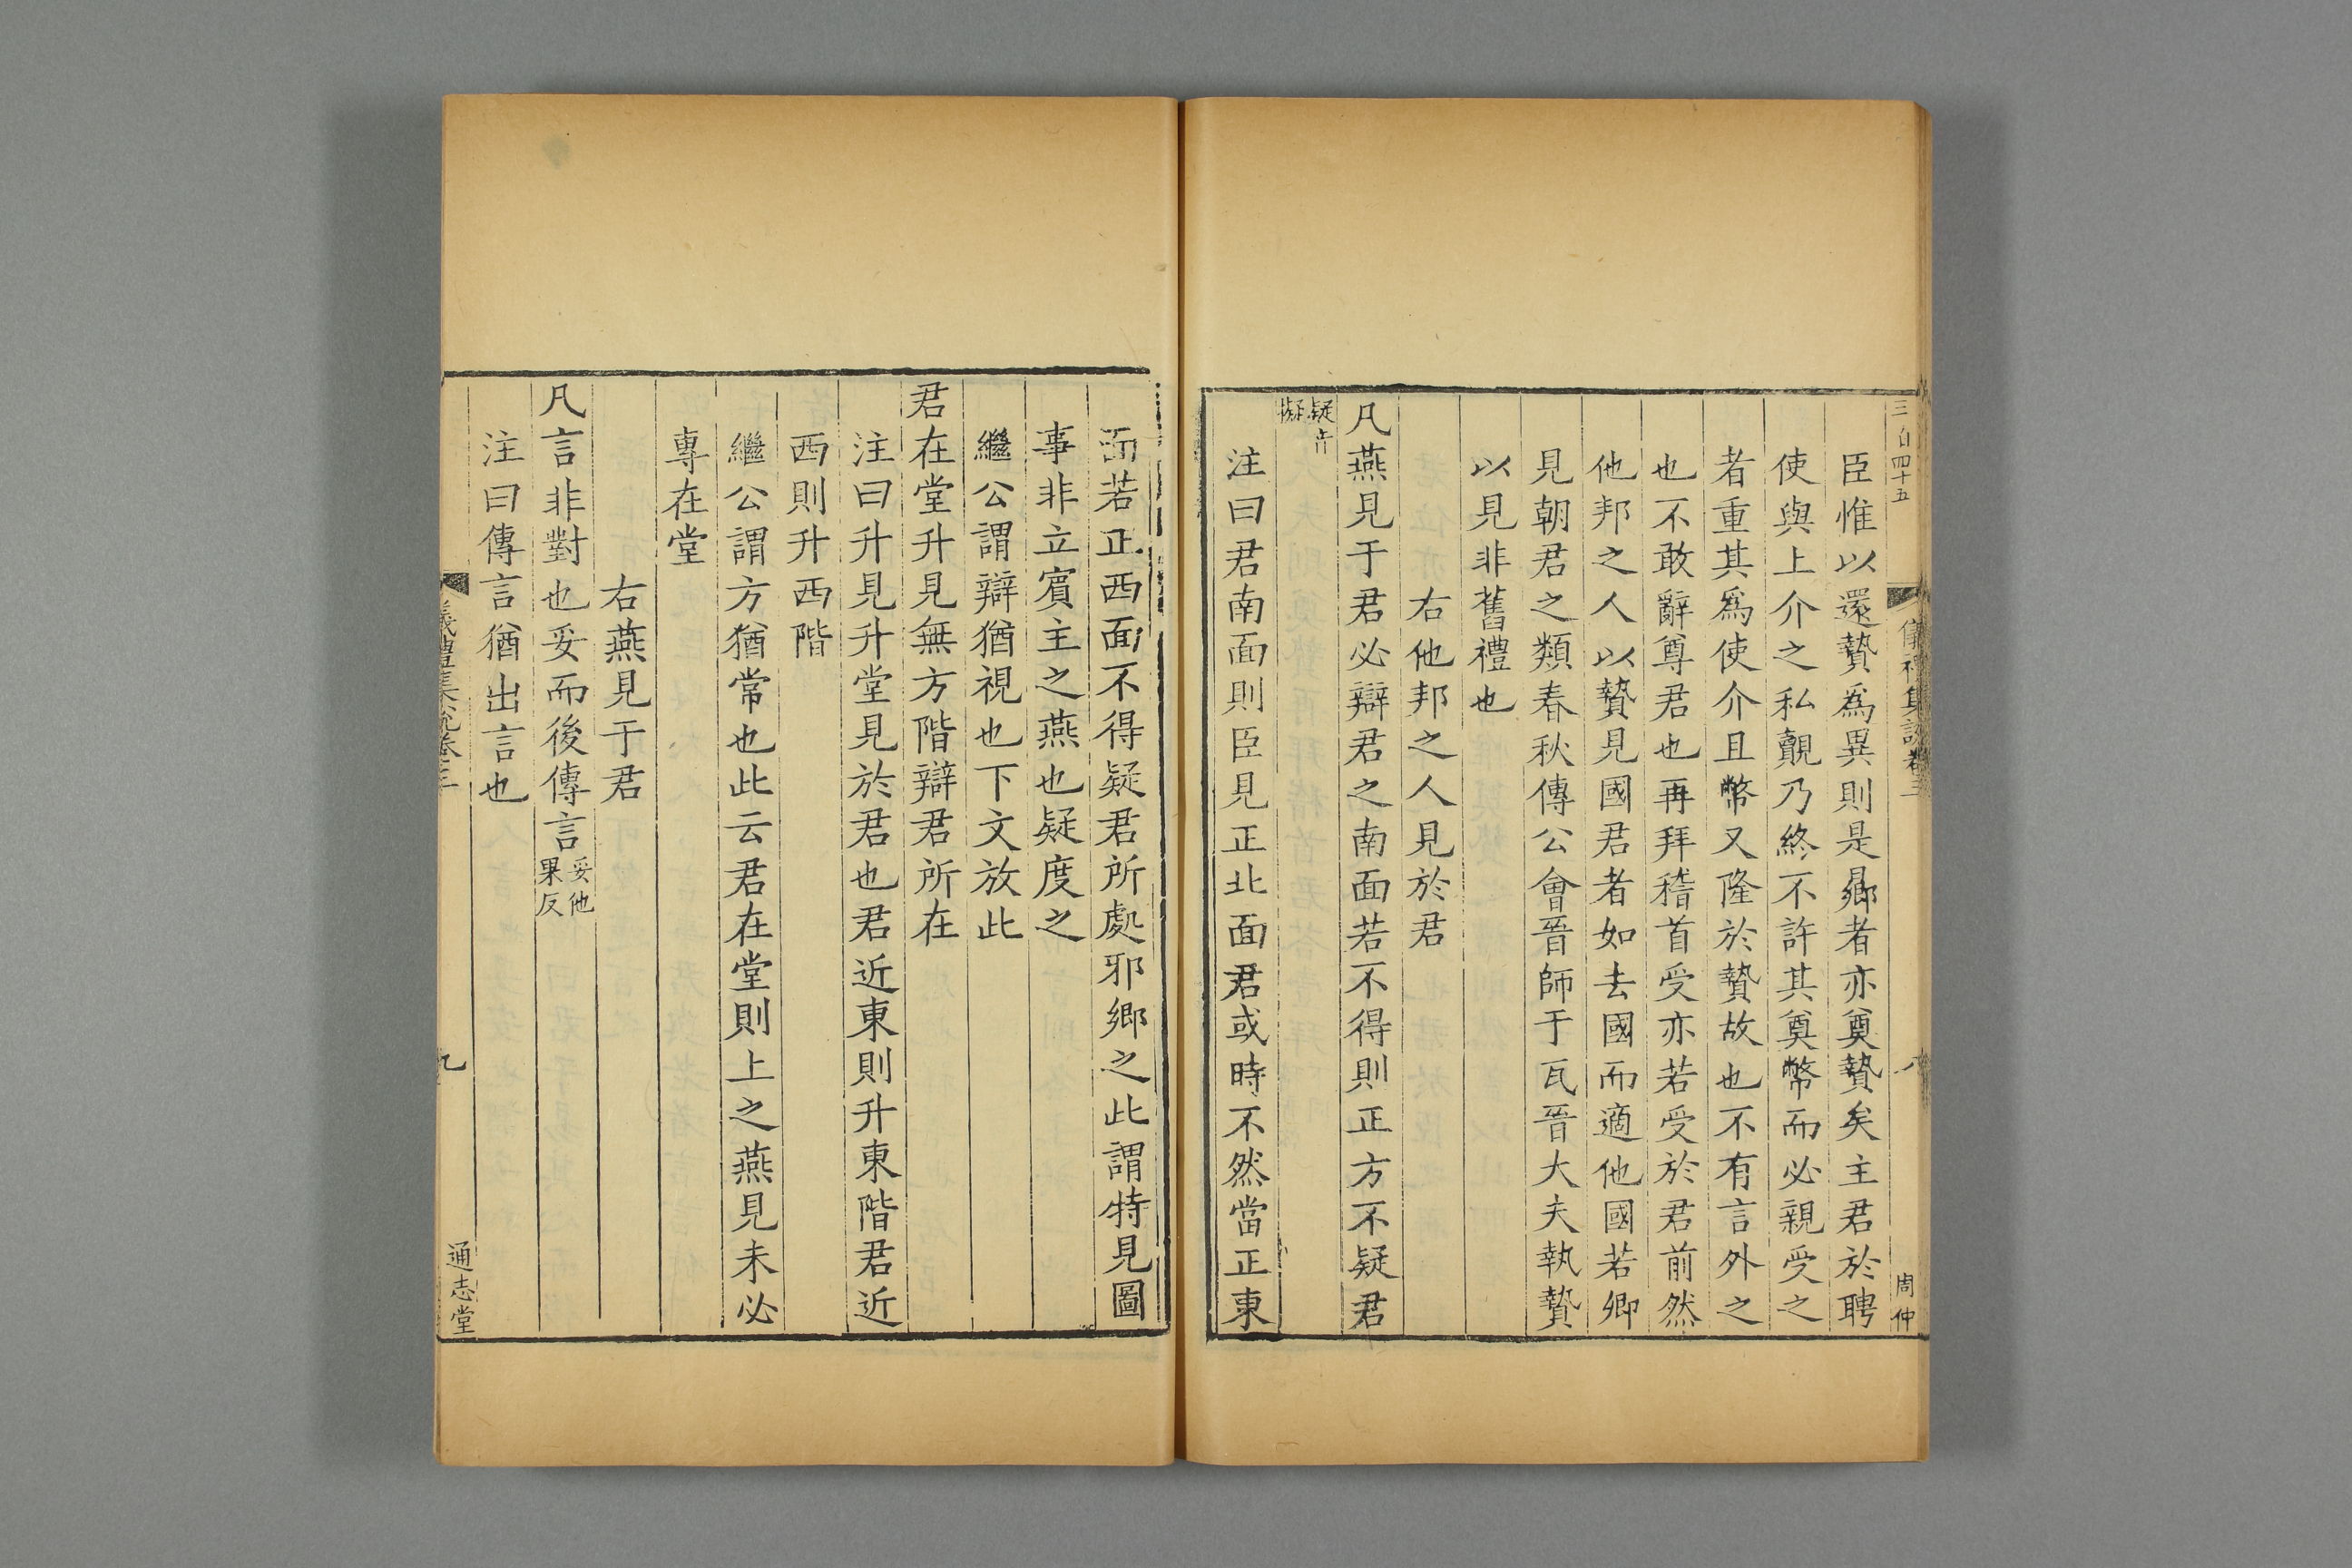 三百四十五
儀禮集說卷三
八
周仲
臣惟以還贄爲異則是曏者亦奠贄矣主君於聘
使與上介之私覿乃終不許其奠幣而必親受之
者重其爲使介且幣又隆於贄故也不有言外之
也不敢辭尊君也再拜稽首受亦若受於君前然
他邦之人以贄見國君者如去國而適他國若卿
見朝君之類春秋傳公會晉師于瓦晉大夫執贄
以見非舊禮也
右他邦之人見於君
凡燕見于君必辯君之南面若不得則正方不疑君
疑音
擬
注曰君南面則臣見正北面君或時不然當正東
面若正西面不得疑君所處邪鄉之此謂特見圖
事非立賓主之燕也疑度之
繼公謂辯猶視也下文放此
君在堂升見無方階辯君所在
注曰升見升堂見於君也君近東則升東階君近
西則升西階
繼公謂方猶常也此云君在堂則上之燕見未必
專在堂
右燕見于君
凡言非對也妥而後傳言妥他果反
注曰傳言猶出言也
儀禮集說卷三
九
通志堂